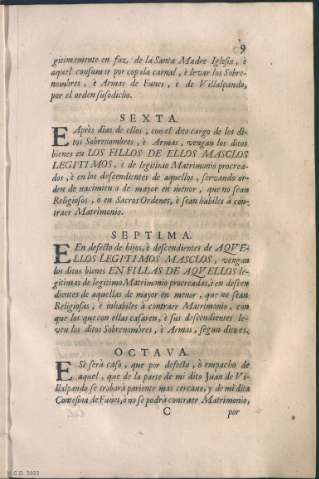 9
gitimamente en faz de la Santa Madre Iglesia, è
aquel consumir por copula carnal, è levar los Sobre-
nombres, è Armas de Funes, è de Villalpando,
por el orden susodicho.
SEXTA.
E Aprés dias de ellos, con el dto cargo de los di-
tos Sobrenombres, è Armas, vengan los ditos
bienes en LOS FILLOS DE ELLOS MASCLOS
LEGITIMOS, è de legitimo Matrimonio procrea-
dos, è en los descendientes de aquellos, servando or-
den de nacimiento de mayor en menor, que no sean
Religiosos, o en Sacros Ordenes, è sean habiles à con-
traer Matrimonio.
SEPTIMA.
E En defecto de hijos, è descendientes de AQVE-
LLOS LEGITIMOS MASCLOS, vengan
los ditos bienes EN FILLAS DE AQVELLOS le-
gitimas de legitimo Matrimonio procreadas, è en descen-
dientes de aquellas de mayor en menor, que no sean
Religiosas, è inhabiles à contraer Matrimonio, con
que los que con ellas casaren, è sus descendientes le-
ven los ditos Sobrenombres, è Armas, segun dito es.
OCTAVA.
E Se será caso, que por defecto, ò empacho de
aquel, que de la parte de mi dito Juan de Vi-
llalpando se trobará pariente mas cercano, y de mi dita
Contesina de Funes, ò no se podrá contraer Matrimonio,
C por